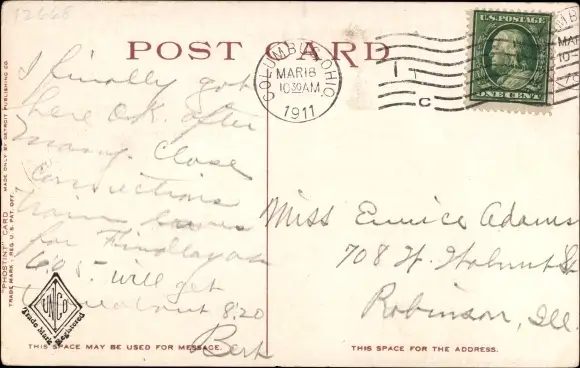 12668
POST CARD
COLUMBUS, OHIO.
MAR 18
10 30 AM
1911
C
U.S. POSTAGE
ONE CENT
MAR
10-
I finally got
here O.K. after
many close
connections
train leaves
for Findlay on
6.05 - will get
about 8:20
Bert
Miss Eunice Adams
708 W. Walnut St
Robinson, Ill.
"PHOSTINT" CARD MADE ONLY BY DETROIT PUBLISHING CO.
TRADE MARK REG. U.S. PAT. OFF.
Trade Mark Registered
THIS SPACE MAY BE USED FOR MESSAGE.
THIS SPACE FOR THE ADDRESS.